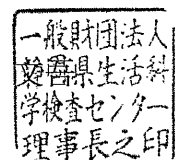 一般財団法人
県生活科
学検査センター
理事長之印